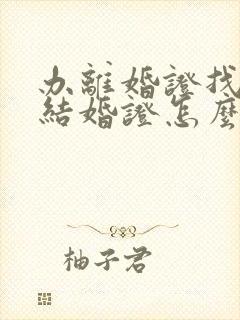 办離婚證找
結婚證怎麼
柚子君